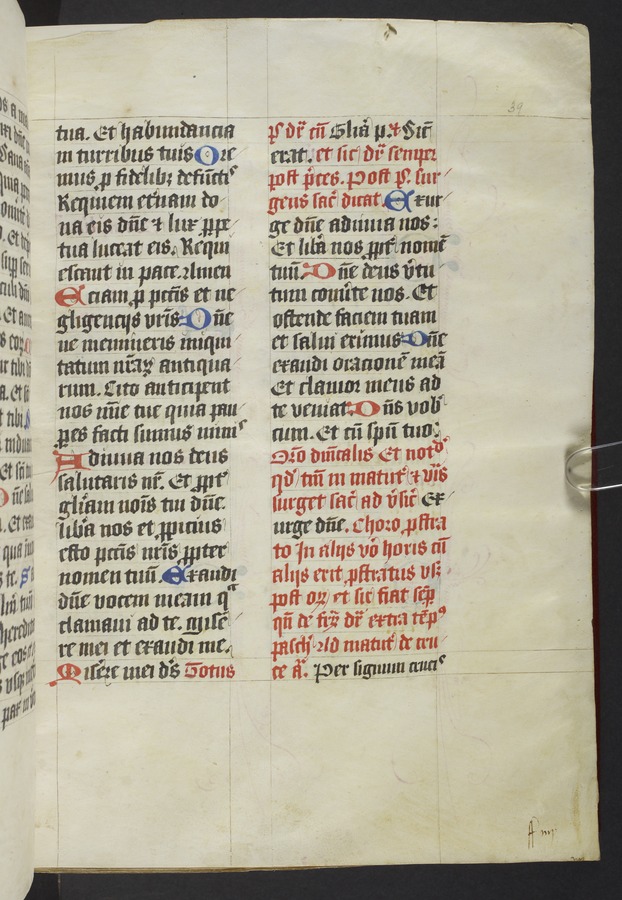 39
tua. Et habundancia
in turribus tuis Ore
mus ꝓ fidelibꝫ defūctis
Requiem eternam do
na eis dñe ⁊ lux ꝑpe
tua luceat eis. Requi
escant in pace. Amen
Eciam ꝓ pctīs et ne
gligencijs nr̄is Dñe
ne memineris iniqui
tatum nr̄aꝝ antiqua
rum. Cito anticipent
nos mīe tue quia pau
peres facti sumus nimis
Adiuua nos deus
salutaris nr̄. Et ꝓpt̄
gl̄iam noīs tui dūe
lib̄a nos et ꝓpicius
esto pctīs nr̄is ꝓpter
nomen tuū. Exaudi
dūe vocem meam qᵃ
clamaui ad te. mise
re mei et exaudi me.
Misēre mei dˀs Totus
p̄s dr̄ cū Gl̄ia p. ⁊ Sic̄
erat. et sic dr̄ semper
post p̄ces. Post p̄s. sur
gens sac̄ dicat. Exur
ge dūe adiuua nos:
Et lib̄a nos ꝓpt̄ nomē
tuū. Dñe deus v̄tu
tum conūte nos. Et
ostende faciem tuam
et salui erimus Dñe
exaudi oracionē meā
Et clamor meus ad
te veniat. Dñs vob
cum. Et cū spū tuo:
Orō dnīcalis Et notᵈ
qd̛ tm̄ in matut̄ ⁊ v̄is
surget sac̄ ad v̄sic̄ Ex
urge dūe. Choro ꝓstra
to In alijs vo horis cū
alijs erit ꝓstratus vsꝫ
post oꝝ et sic fiat semꝑ
qn̄ de fꝝ dr̄ extra temp
pasch̄. Ad matut̄ de cru
ce ā. Per signum crucis
A iiij